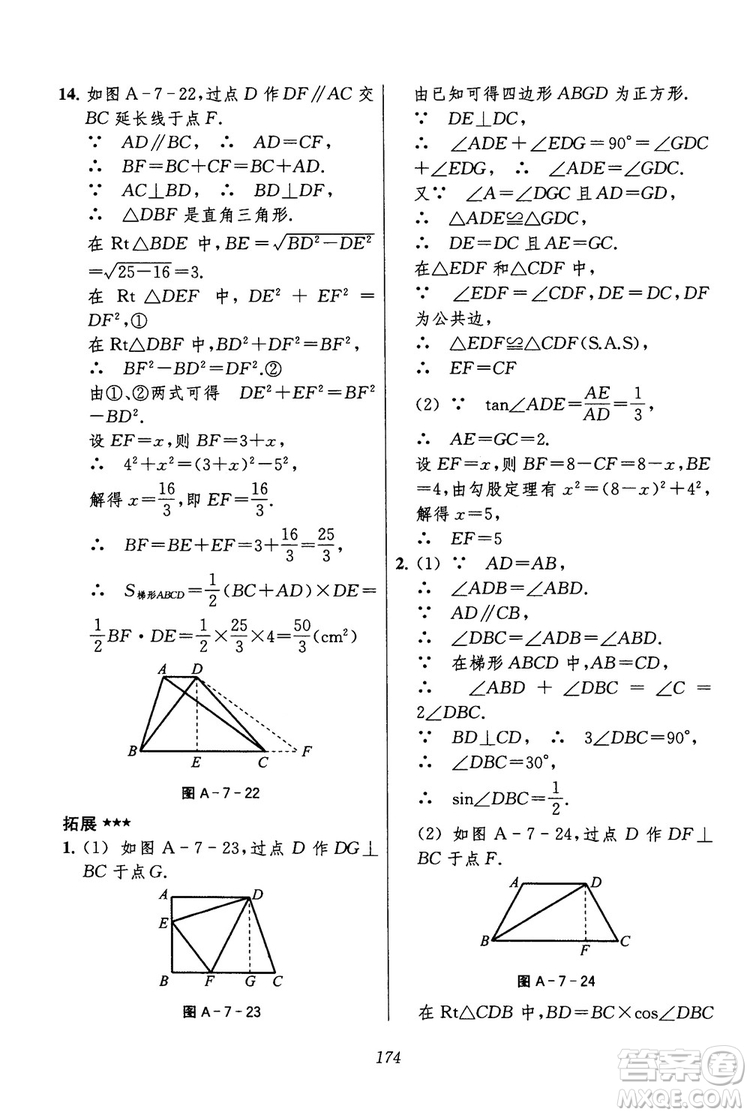 14. 如图 A-7-22,过点 D 作 DF∥AC 交
BC 延长线于点 F.
∵ AD∥BC, ∴ AD=CF,
∴ BF=BC+CF=BC+AD.
∵ AC⊥BD, ∴ BD⊥DF,
∴ △DBF 是直角三角形.
在 Rt△BDE 中,BE=√(BD²-DE²)
=√(25-16)=3.
在 Rt △DEF 中, DE² + EF² =
DF²,①
在 Rt△DBF 中,BD²+DF²=BF²,
∴ BF²-BD²=DF².②
由①、②两式可得 DE²+EF²=BF²
-BD².
设 EF=x,则 BF=3+x
∴ 4²+x²=(3+x)²-5²,
解得 x=16/3,即 EF=16/3.
∴ BF=BE+EF=3+16/3=25/3,
∴ S梯形ABCD=1/2(BC+AD)×DE=
1/2BF·DE=1/2×25/3×4=50/3(cm²)
A D
B E C F
图 A-7-22
拓展 ★★★
1. (1) 如图 A-7-23,过点 D 作 DG⊥
BC 于点 G.
A D
E
B F G C
图 A-7-23
由已知可得四边形 ABGD 为正方形.
∵ DE⊥DC,
∴ ∠ADE+∠EDG=90°=∠GDC
+∠EDG,
∴ ∠ADE=∠GDC.
又∵ ∠A=∠DGC 且 AD=GD,
∴ △ADE≌△GDC,
∴ DE=DC 且 AE=GC.
在△EDF 和△CDF 中,
∵ ∠EDF=∠CDF,DE=DC,DF
为公共边,
∴ △EDF≌△CDF(S.A.S)
∴ EF=CF
(2) ∵ tan∠ADE=AE/AD=1/3,
∴ AE=GC=2.
设 EF=x,则 BF=8-CF=8-x,BE
=4,由勾股定理有 x²=(8-x)²+4²,
解得 x=5,
∴ EF=5
2. (1) ∵ AD=AB,
∴ ∠ADB=∠ABD.
∵ AD∥CB,
∴ ∠DBC=∠ADB=∠ABD.
∵ 在梯形 ABCD 中,AB=CD,
∴ ∠ABD + ∠DBC = ∠C =
2∠DBC.
∵ BD⊥CD, ∴ 3∠DBC=90°,
∴ ∠DBC=30°,
∴ sin∠DBC=1/2.
(2) 如图 A-7-24,过点 D 作 DF⊥
BC 于点 F.
A D
B F C
图 A-7-24
在 Rt△CDB 中,BD=BC×cos∠DBC
174
答案圈
MXQE.COM